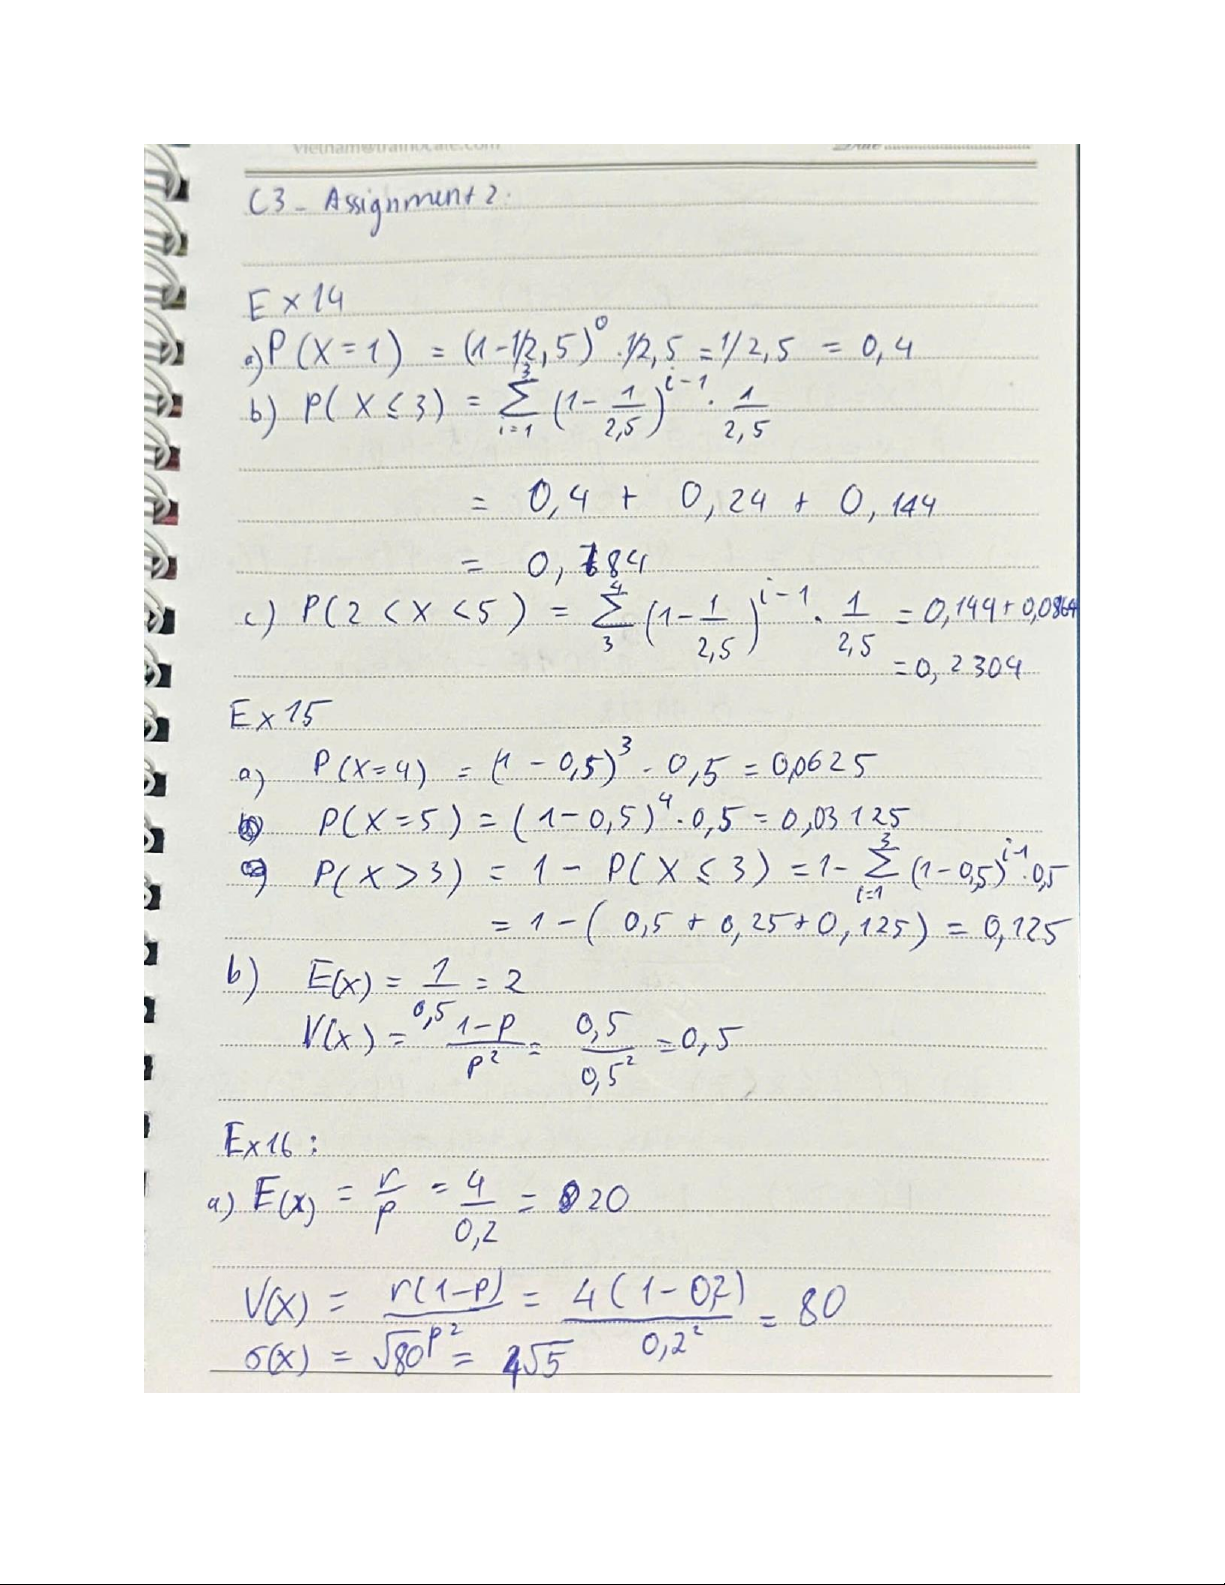 C3 - Assignment 2.
Ex 14
a) P(X=1) = (1-1/2,5)^0 . 1/2,5 = 1/2,5 = 0,4
b) P(X ≤ 3) = Σ_{i=1}^{3} (1 - 1/2,5)^{i-1} . 1/2,5
= 0,4 + 0,24 + 0,144
= 0,784
c) P(2 < X < 5) = Σ_{3}^{4} (1 - 1/2,5)^{i-1} . 1/2,5 = 0,144 + 0,0864
= 0,2304
Ex 15
a) P(X=4) = (1 - 0,5)^3 . 0,5 = 0,0625
P(X=5) = (1 - 0,5)^4 . 0,5 = 0,03125
P(X > 3) = 1 - P(X ≤ 3) = 1 - Σ_{i=1}^{3} (1 - 0,5)^{i-1} . 0,5
= 1 - (0,5 + 0,25 + 0,125) = 0,125
b) E(x) = 1/0,5 = 2
V(x) = (1-p)/p^2 = 0,5/0,5^2 = 0,5
Ex 16 :
a) E(x) = r/p = 4/0,2 = 20
V(x) = r(1-p)/p^2 = 4(1-0,2)/0,2^2 = 80
σ(x) = √80 = 4√5